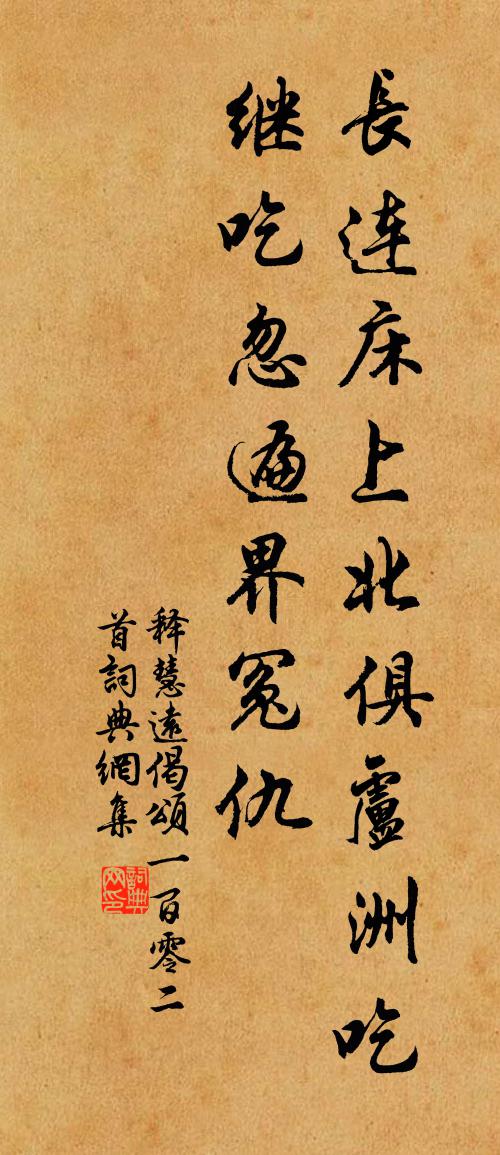 長连床上北俱盧洲吃
继吃忽遍界冤仇
释慧遠偈頌一百零二
首詞典網集
詞典网印